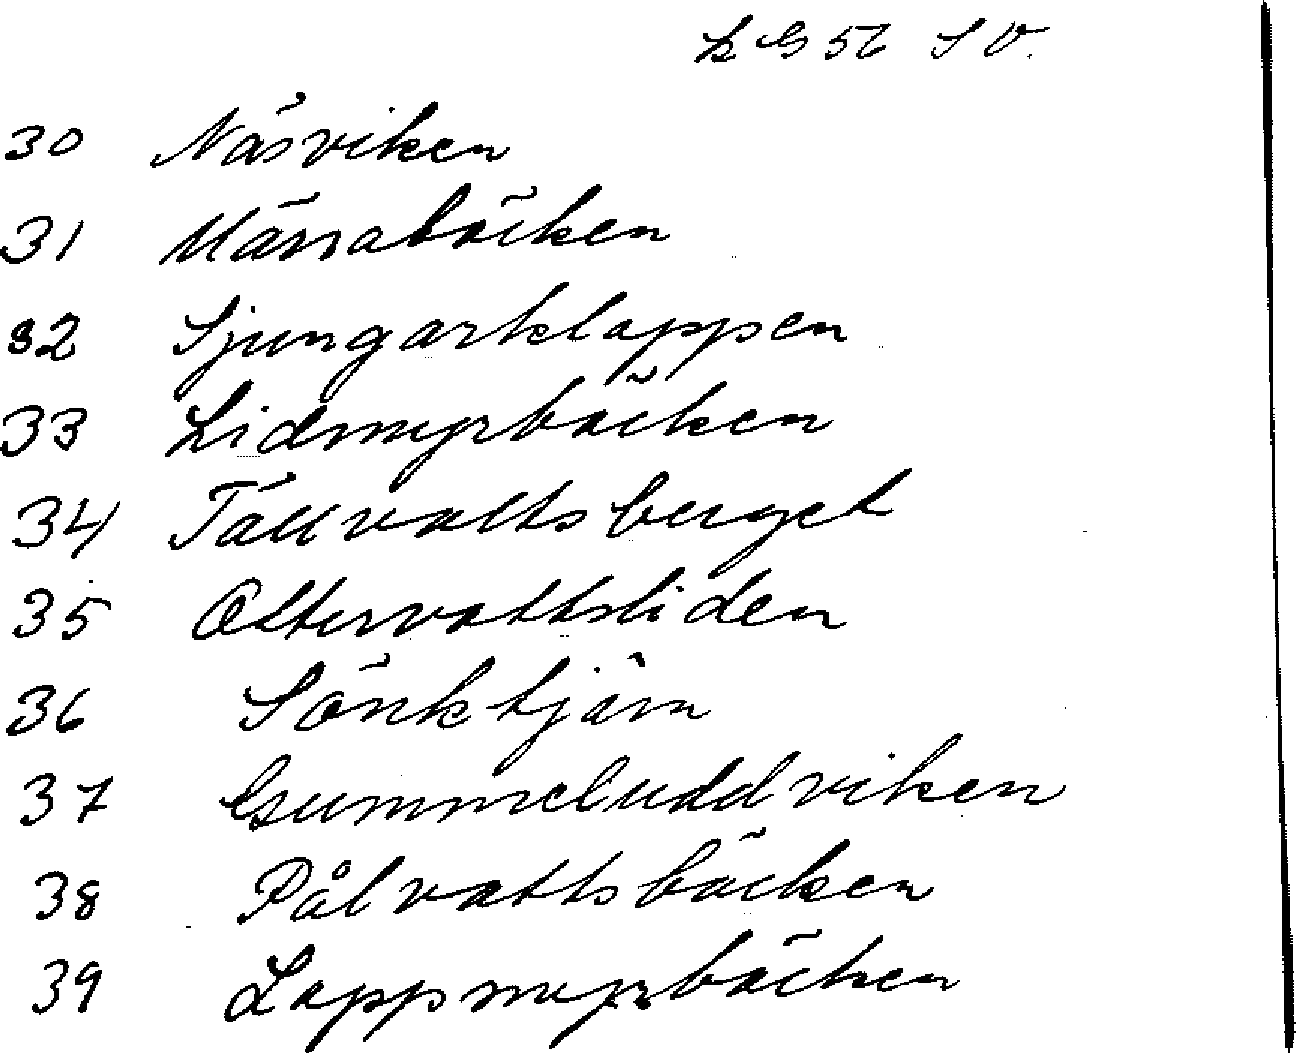 56 S V.
30 Näsviken
31 Märrabäcken
32 Sjungarklappen
33 Lidmyrbäcken
34 Tällvattsberget
35 Oltervattsliden
36 Sänktjärn
37 Gummeluddviken
38 Pålvattsbäcken
39 Lappmyrbäcken